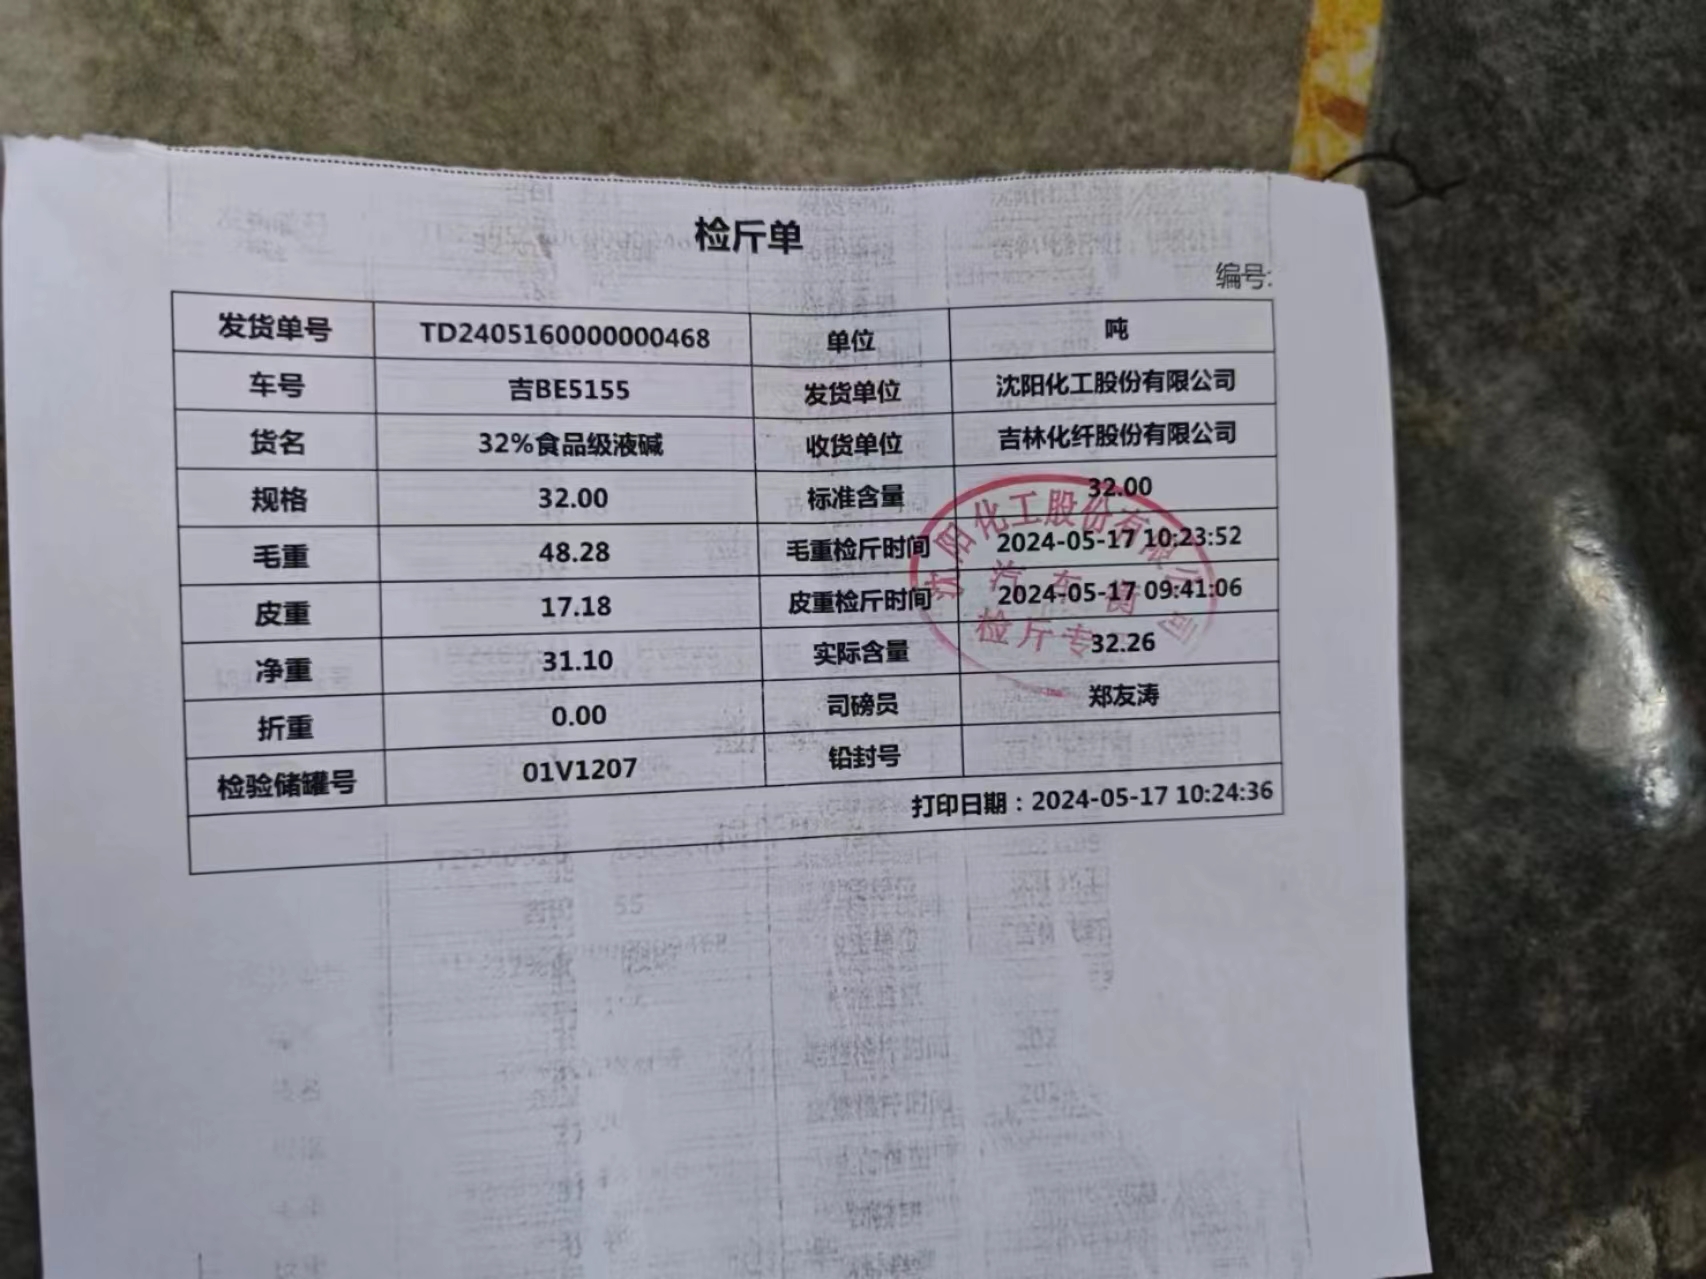 检斤单
编号:
发货单号 TD2405160000000468 单位 吨
车号 吉BE5155 发货单位 沈阳化工股份有限公司
货名 32%食品级液碱 收货单位 吉林化纤股份有限公司
规格 32.00 标准含量 32.00
毛重 48.28 毛重检斤时间 2024-05-17 10:23:52
皮重 17.18 皮重检斤时间 2024-05-17 09:41:06
净重 31.10 实际含量 32.26
折重 0.00 司磅员 郑友涛
检验储罐号 01V1207 铅封号
打印日期：2024-05-17 10:24:36
沈阳化工股份有限公司
汽车衡
检斤专